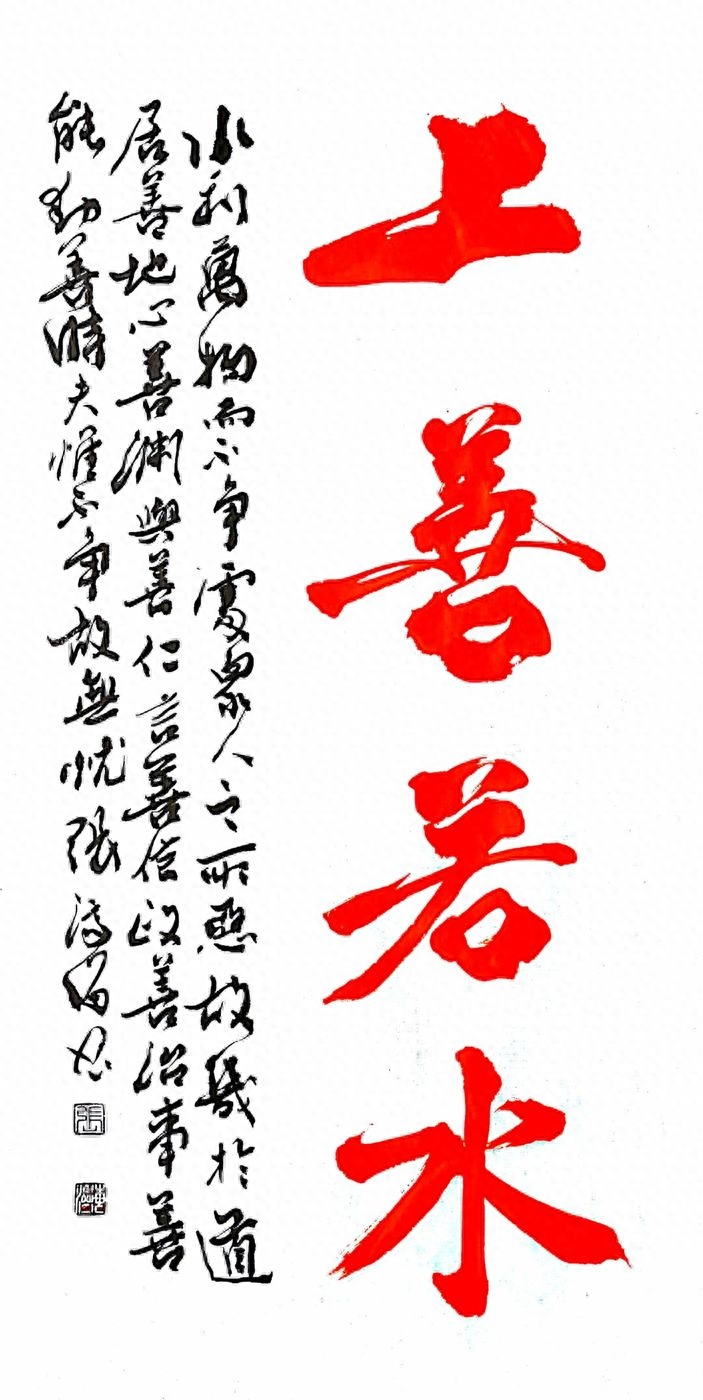 上善若水
水利萬物而不争處衆人之所惡故幾於道
居善地心善渊與善仁言善信政善治事善
能動善時夫惟不争故無忧張
張